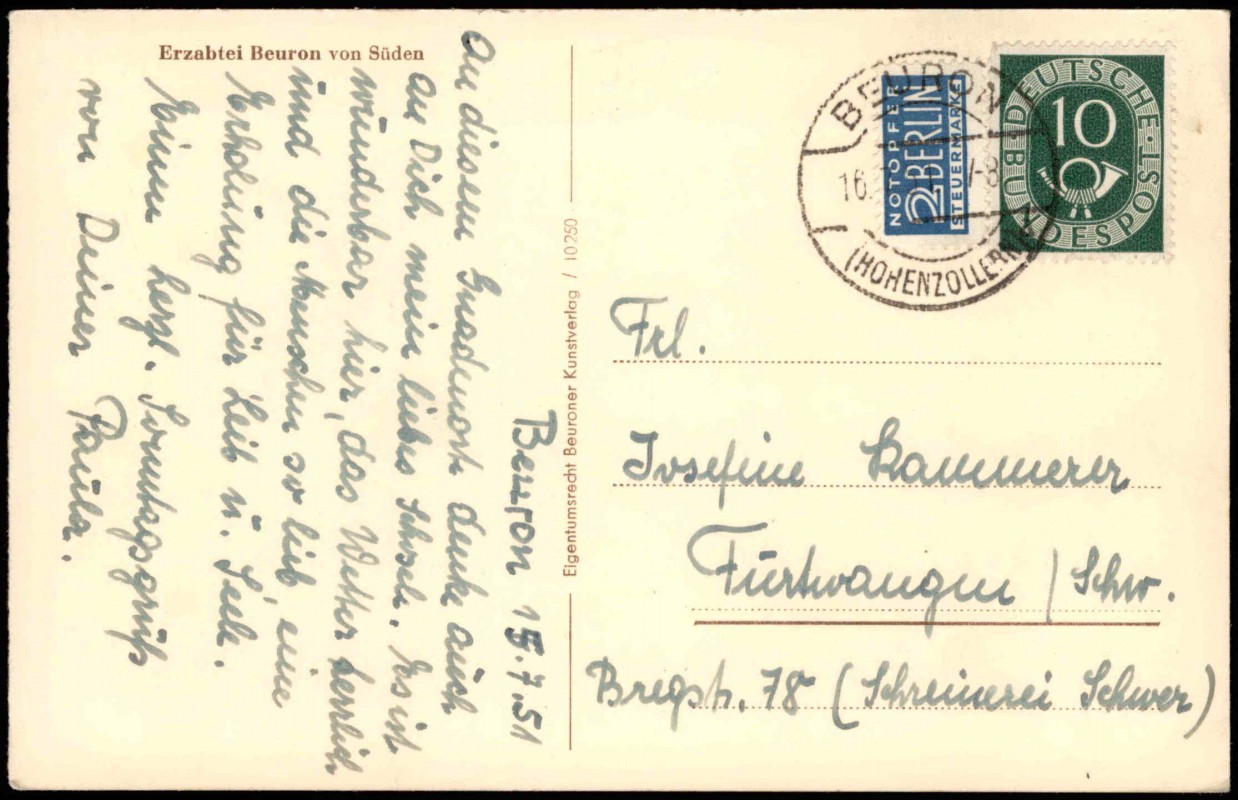 Erzabtei Beuron von Süden
Beuron 15.7.51
An diesem Gnadenort denke auch
an Dich mein liebes Schwesch. Es ist
wunderbar hier, das Wetter herrlich
und die Menschen so lieb, eine
Erholung für Leib u. Seele.
Einen herzl. Sonntagsgruß
von Deiner Paula.
Eigentumsrecht Beuroner Kunstverlag / 10250
BEURON
16. 7-8
(HOHENZOLLERN)
NOTOPFER
2 BERLIN
STEUERMARKE
DEUTSCHE BUNDESPOST
10
Frl.
Josefine Kammerer
Furtwangen / Schw.
Bregstr. 78 (Schreinerei Schwer)